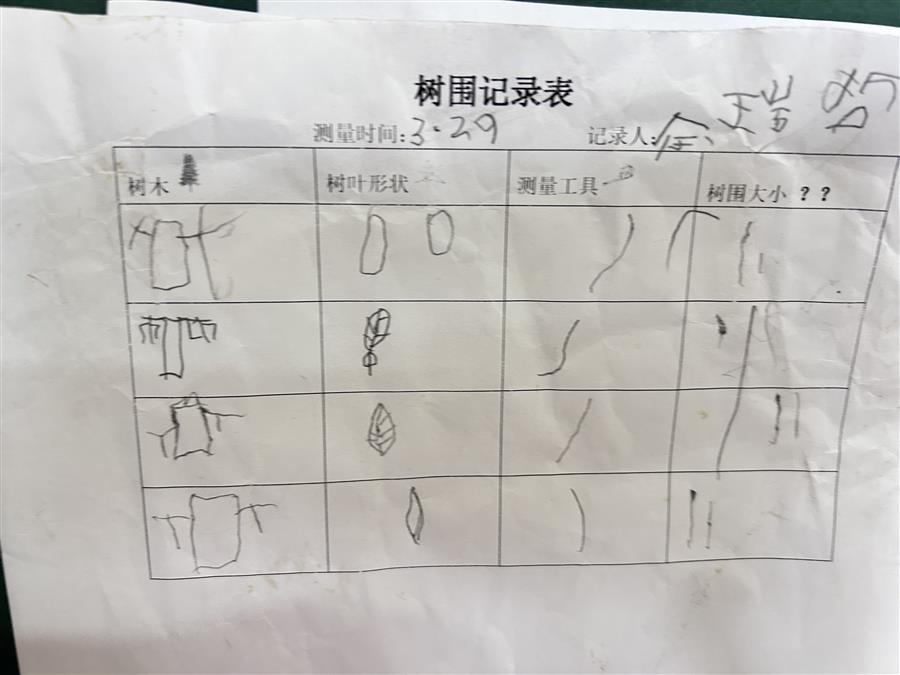 树围记录表
测量时间:3.29 记录人:
树木 树叶形状 测量工具 树围大小 ??